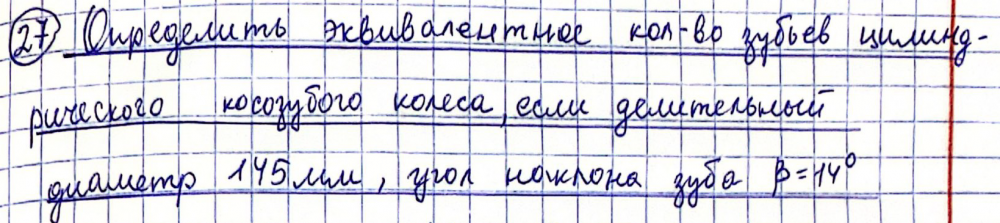 27 Определить эквивалентное кол-во зубьев цилинд-
рического косозубого колеса, если делительный
диаметр 145мм, угол наклона зуба β=14°